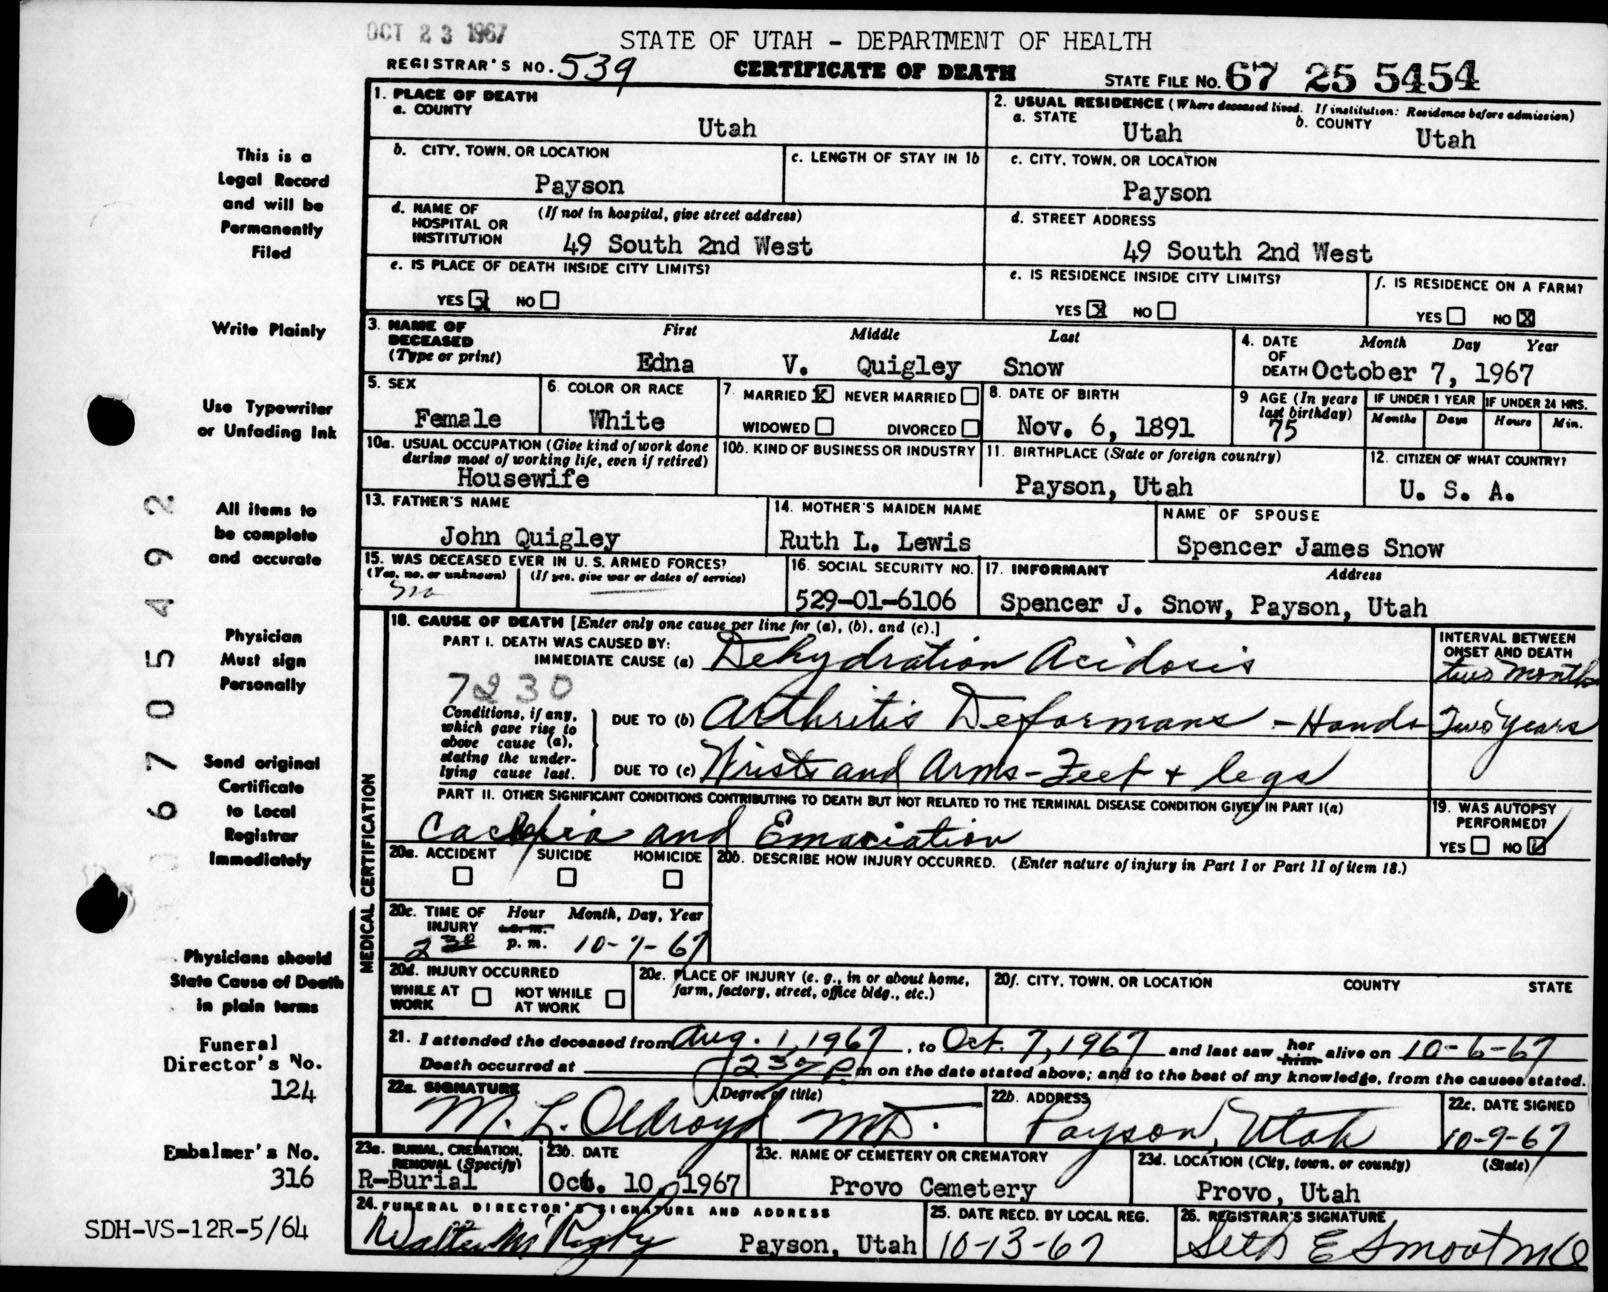 OCT 23 1967
STATE OF UTAH - DEPARTMENT OF HEALTH
REGISTRAR'S NO. 539
CERTIFICATE OF DEATH
STATE FILE NO. 67 25 5454
This is a
Legal Record
and will be
Permanently
Filed
Write Plainly
Use Typewriter
or Unfading Ink
All items to
be complete
and accurate
Physician
Must sign
Personally
Send original
Certificate
to Local
Registrar
Immediately
Physicians should
State Cause of Death
in plain terms
Funeral
Director's No.
124
Embalmer's No.
316
SDH-VS-12R-5/64
67054 92
1. PLACE OF DEATH
a. COUNTY
Utah
2. USUAL RESIDENCE (Where deceased lived. If institution: Residence before admission)
a. STATE Utah b. COUNTY Utah
b. CITY, TOWN, OR LOCATION
Payson
c. LENGTH OF STAY IN 1b
c. CITY, TOWN, OR LOCATION
Payson
d. NAME OF HOSPITAL OR INSTITUTION (If not in hospital, give street address)
49 South 2nd West
d. STREET ADDRESS
49 South 2nd West
e. IS PLACE OF DEATH INSIDE CITY LIMITS?
YES X NO
e. IS RESIDENCE INSIDE CITY LIMITS?
YES X NO
f. IS RESIDENCE ON A FARM?
YES NO X
3. NAME OF DECEASED (Type or print)
First Middle Last
Edna V. Quigley Snow
4. DATE OF DEATH Month Day Year
October 7, 1967
5. SEX
Female
6. COLOR OR RACE
White
7. MARRIED X NEVER MARRIED
WIDOWED DIVORCED
8. DATE OF BIRTH
Nov. 6, 1891
9 AGE (In years last birthday)
75
IF UNDER 1 YEAR IF UNDER 24 HRS.
Months Days Hours Min.
10a. USUAL OCCUPATION (Give kind of work done during most of working life, even if retired)
Housewife
10b. KIND OF BUSINESS OR INDUSTRY
11. BIRTHPLACE (State or foreign country)
Payson, Utah
12. CITIZEN OF WHAT COUNTRY?
U. S. A.
13. FATHER'S NAME
John Quigley
14. MOTHER'S MAIDEN NAME
Ruth L. Lewis
NAME OF SPOUSE
Spencer James Snow
15. WAS DECEASED EVER IN U. S. ARMED FORCES?
(Yes, no, or unknown) (If yes, give war or dates of service)
no
16. SOCIAL SECURITY NO.
529-01-6106
17. INFORMANT Address
Spencer J. Snow, Payson, Utah
MEDICAL CERTIFICATION
18. CAUSE OF DEATH [Enter only one cause per line for (a), (b), and (c).]
INTERVAL BETWEEN ONSET AND DEATH
PART I. DEATH WAS CAUSED BY:
IMMEDIATE CAUSE (a) Dehydration Acidosis two months
7230
Conditions, if any, which gave rise to above cause (a), stating the underlying cause last.
DUE TO (b) Arthritis Deformans - Hands Two years
DUE TO (c) Wrists and Arms - Feet + legs
PART II. OTHER SIGNIFICANT CONDITIONS CONTRIBUTING TO DEATH BUT NOT RELATED TO THE TERMINAL DISEASE CONDITION GIVEN IN PART I(a)
and Emaciation
19. WAS AUTOPSY PERFORMED?
YES NO
20a. ACCIDENT SUICIDE HOMICIDE
20b. DESCRIBE HOW INJURY OCCURRED. (Enter nature of injury in Part I or Part II of item 18.)
20c. TIME OF INJURY Hour Month, Day, Year
a. m.
2 30 p. m. 10-7-67
20d. INJURY OCCURRED
WHILE AT WORK NOT WHILE AT WORK
20e. PLACE OF INJURY (e. g., in or about home, farm, factory, street, office bldg., etc.)
20f. CITY, TOWN, OR LOCATION COUNTY STATE
21. I attended the deceased from Aug. 1, 1967, to Oct. 7, 1967 and last saw her him alive on 10-6-67
Death occurred at 2 30 P m on the date stated above; and to the best of my knowledge, from the causes stated.
22a. SIGNATURE (Degree or title)
M. L. Oldroyd MD.
22b. ADDRESS
Payson, Utah
22c. DATE SIGNED
10-9-67
23a. BURIAL, CREMATION, REMOVAL (Specify)
R-Burial
23b. DATE
Oct. 10, 1967
23c. NAME OF CEMETERY OR CREMATORY
Provo Cemetery
23d. LOCATION (City, town, or county) (State)
Provo, Utah
24. FUNERAL DIRECTOR'S SIGNATURE AND ADDRESS
Walter Rigby Payson, Utah
25. DATE RECD. BY LOCAL REG.
10-13-67
26. REGISTRAR'S SIGNATURE
Seth E Smoot MD